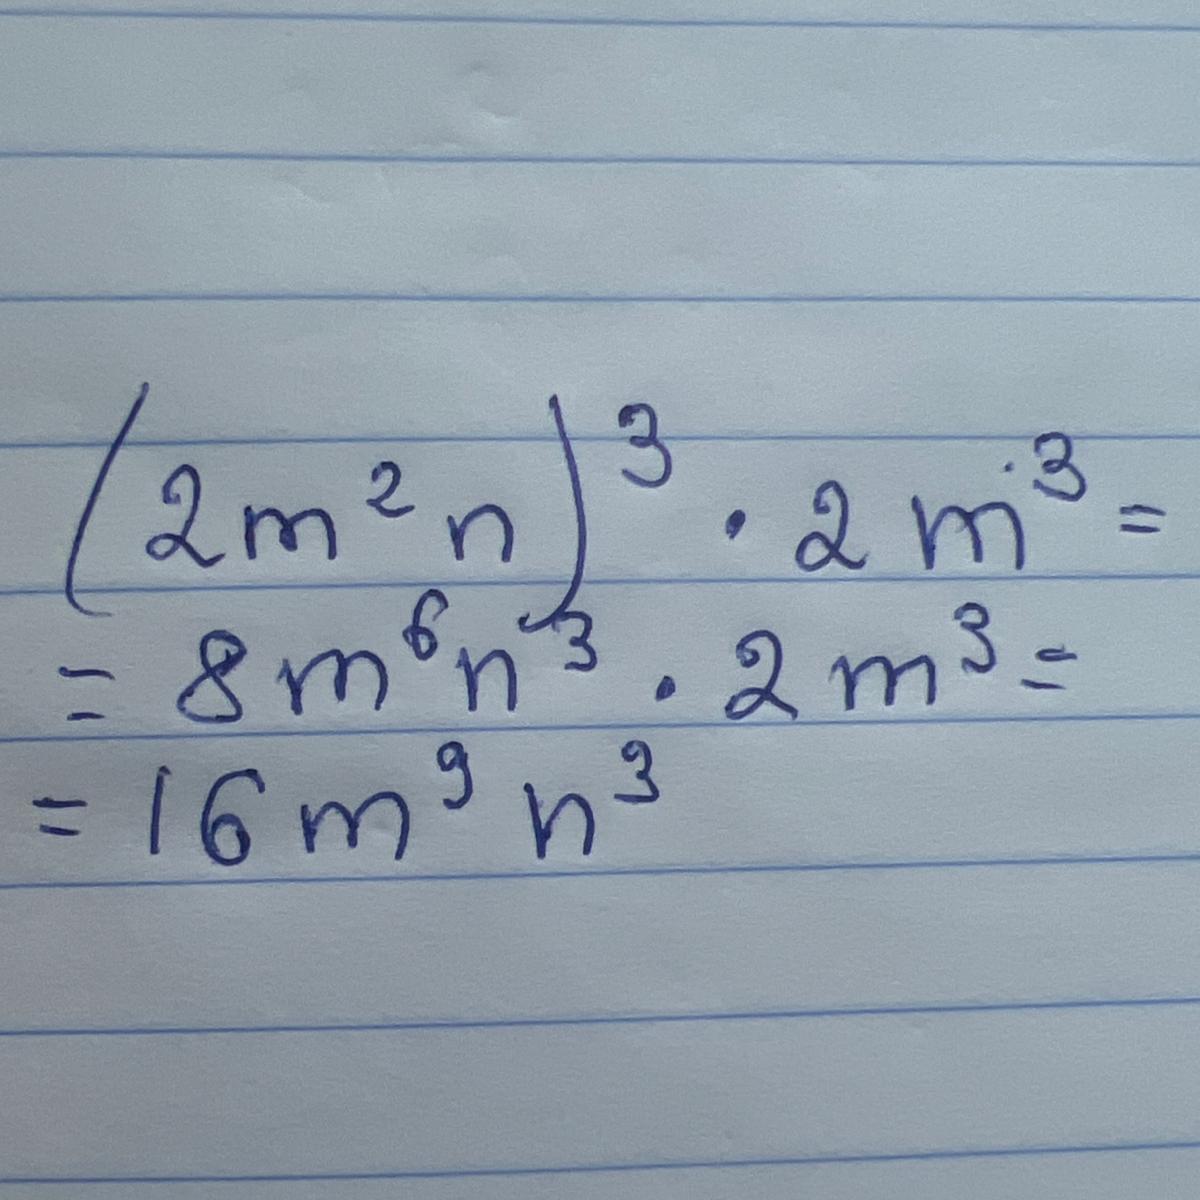 (2m²n)³ · 2m³ =
= 8m⁶n³ · 2m³ =
= 16m⁹n³